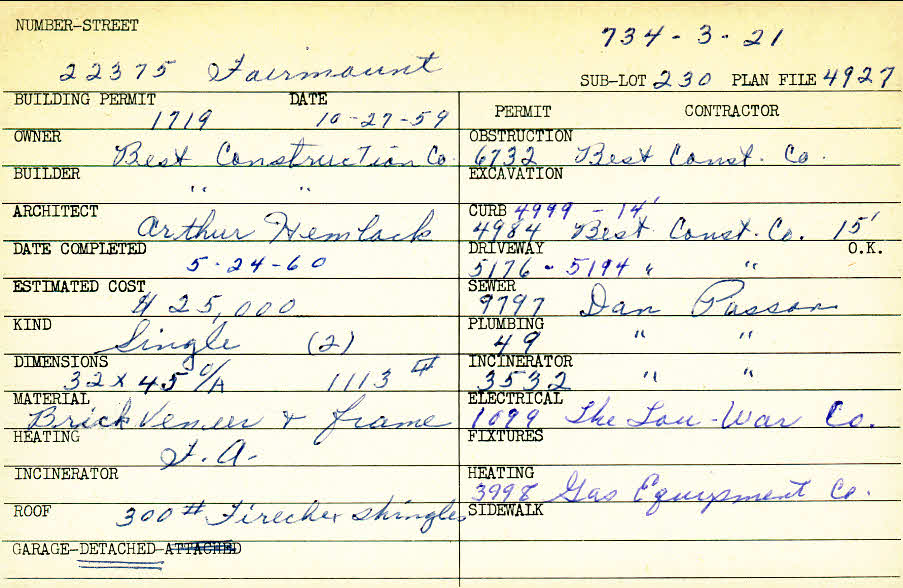 NUMBER-STREET
734-3-21
22375 Fairmount
SUB-LOT 230 PLAN FILE 4927
BUILDING PERMIT DATE
1719 10-27-59
OWNER
Best Construction Co.
BUILDER
" "
ARCHITECT
Arthur Hemlock
DATE COMPLETED
5-24-60
ESTIMATED COST
$25,000
KIND
Single (2)
DIMENSIONS
32 x 45 O/A 1113 #
MATERIAL
Brick Veneer & frame
HEATING
F.A.
INCINERATOR
ROOF 300# Firechex shingles
GARAGE-DETACHED-ATTACHED
PERMIT CONTRACTOR
OBSTRUCTION
6732 Best Const. Co.
EXCAVATION
CURB 4999 - 14'
4984 Best Const. Co. 15'
DRIVEWAY O.K.
5176 - 5194 " "
SEWER
9797 Dan Passon
PLUMBING
49 " "
INCINERATOR
3532 " "
ELECTRICAL
1099 The Lou-War Co.
FIXTURES
HEATING
3998 Gas Equipment Co.
SIDEWALK